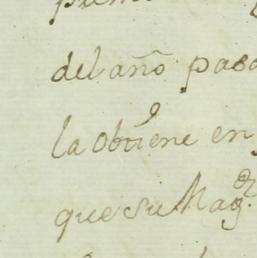 del año pasa
la obtiene en
que su Mag.